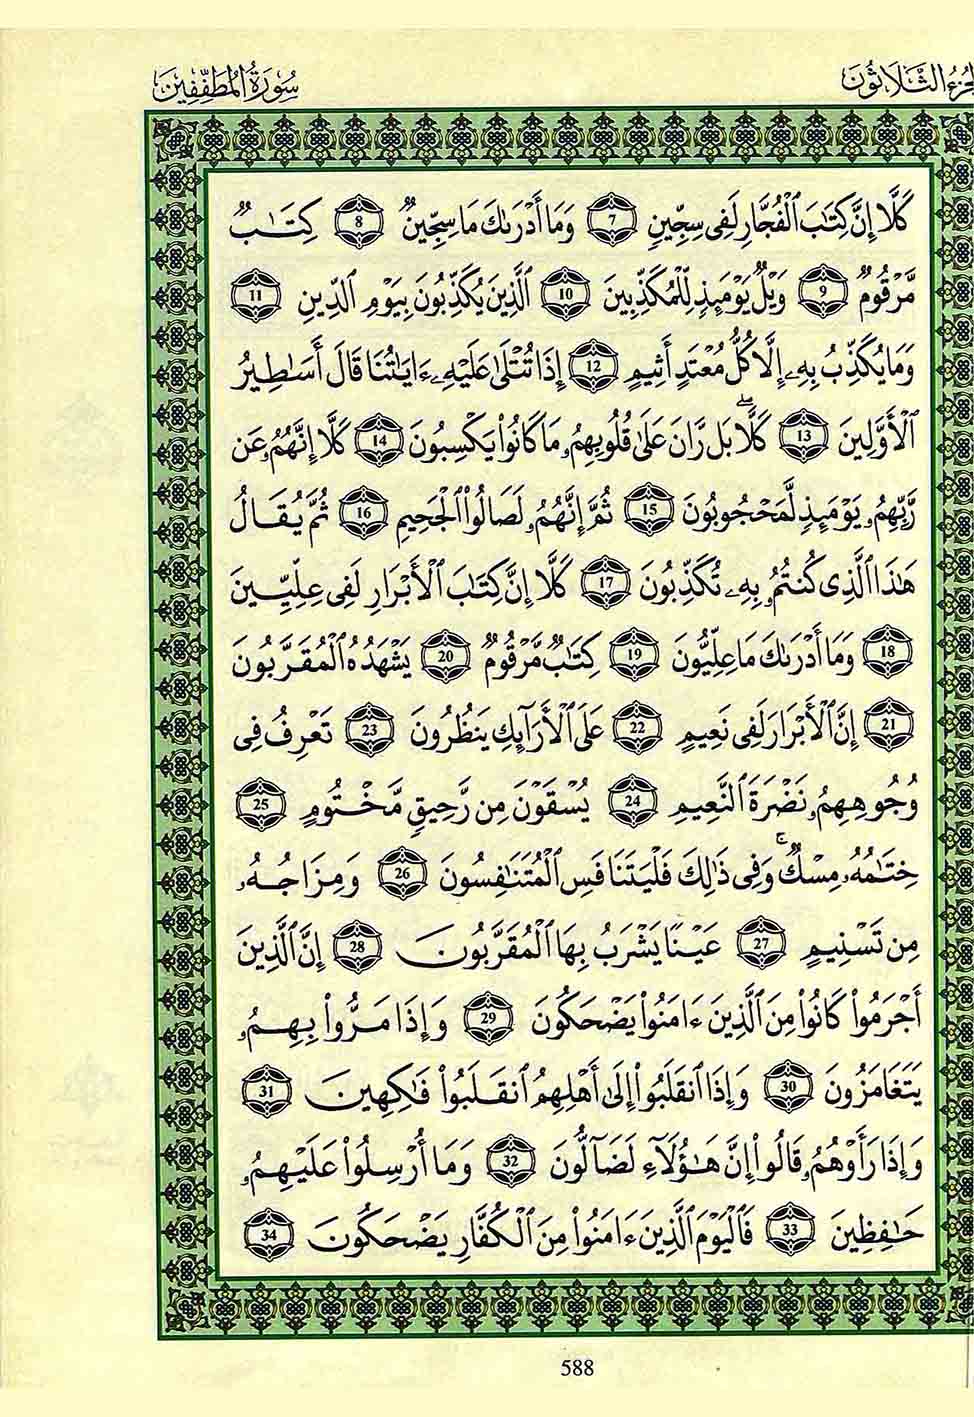 الجزء الثلاثون
سورة المطففين
كَلَّا إِنَّ كِتَٰبَ ٱلْفُجَّارِ لَفِى سِجِّينٍ 7 وَمَا أَدْرَىٰكَ مَا سِجِّينٌ 8 كِتَٰبٌ
مَّرْقُومٌ 9 وَيْلٌ يَوْمَئِذٍ لِّلْمُكَذِّبِينَ 10 ٱلَّذِينَ يُكَذِّبُونَ بِيَوْمِ ٱلدِّينِ 11
وَمَا يُكَذِّبُ بِهِۦ إِلَّا كُلُّ مُعْتَدٍ أَثِيمٍ 12 إِذَا تُتْلَىٰ عَلَيْهِۦ ءَايَٰتُنَا قَالَ أَسَٰطِيرُ
ٱلْأَوَّلِينَ 13 كَلَّاۖ بَل رَّانَ عَلَىٰ قُلُوبِهِمُۥ مَا كَانُوا۟ يَكْسِبُونَ 14 كَلَّا إِنَّهُمُۥ عَن
رَّبِّهِمُۥ يَوْمَئِذٍ لَّمَحْجُوبُونَ 15 ثُمَّ إِنَّهُمُۥ لَصَالُوا۟ ٱلْجَحِيمِ 16 ثُمَّ يُقَالُ
هَٰذَا ٱلَّذِى كُنتُمُۥ بِهِۦ تُكَذِّبُونَ 17 كَلَّا إِنَّ كِتَٰبَ ٱلْأَبْرَارِ لَفِى عِلِيِّينَ
18 وَمَا أَدْرَىٰكَ مَا عِلِيُّونَ 19 كِتَٰبٌ مَّرْقُومٌ 20 يَشْهَدُهُ ٱلْمُقَرَّبُونَ
21 إِنَّ ٱلْأَبْرَارَ لَفِى نَعِيمٍ 22 عَلَى ٱلْأَرَآئِكِ يَنظُرُونَ 23 تَعْرِفُ فِى
وُجُوهِهِمُۥ نَضْرَةَ ٱلنَّعِيمِ 24 يُسْقَوْنَ مِن رَّحِيقٍ مَّخْتُومٍ 25
خِتَٰمُهُۥ مِسْكٌۚ وَفِى ذَٰلِكَ فَلْيَتَنَافَسِ ٱلْمُتَنَٰفِسُونَ 26 وَمِزَاجُهُۥ
مِن تَسْنِيمٍ 27 عَيْنًا يَشْرَبُ بِهَا ٱلْمُقَرَّبُونَ 28 إِنَّ ٱلَّذِينَ
أَجْرَمُوا۟ كَانُوا۟ مِنَ ٱلَّذِينَ ءَامَنُوا۟ يَضْحَكُونَ 29 وَإِذَا مَرُّوا۟ بِهِمُۥ
يَتَغَامَزُونَ 30 وَإِذَا ٱنقَلَبُوا۟ إِلَىٰ أَهْلِهِمُ ٱنقَلَبُوا۟ فَٰكِهِينَ 31
وَإِذَا رَأَوْهُمُۥ قَالُوا۟ إِنَّ هَٰؤُلَآءِ لَضَآلُّونَ 32 وَمَا أُرْسِلُوا۟ عَلَيْهِمُۥ
حَٰفِظِينَ 33 فَٱلْيَوْمَ ٱلَّذِينَ ءَامَنُوا۟ مِنَ ٱلْكُفَّارِ يَضْحَكُونَ 34
588